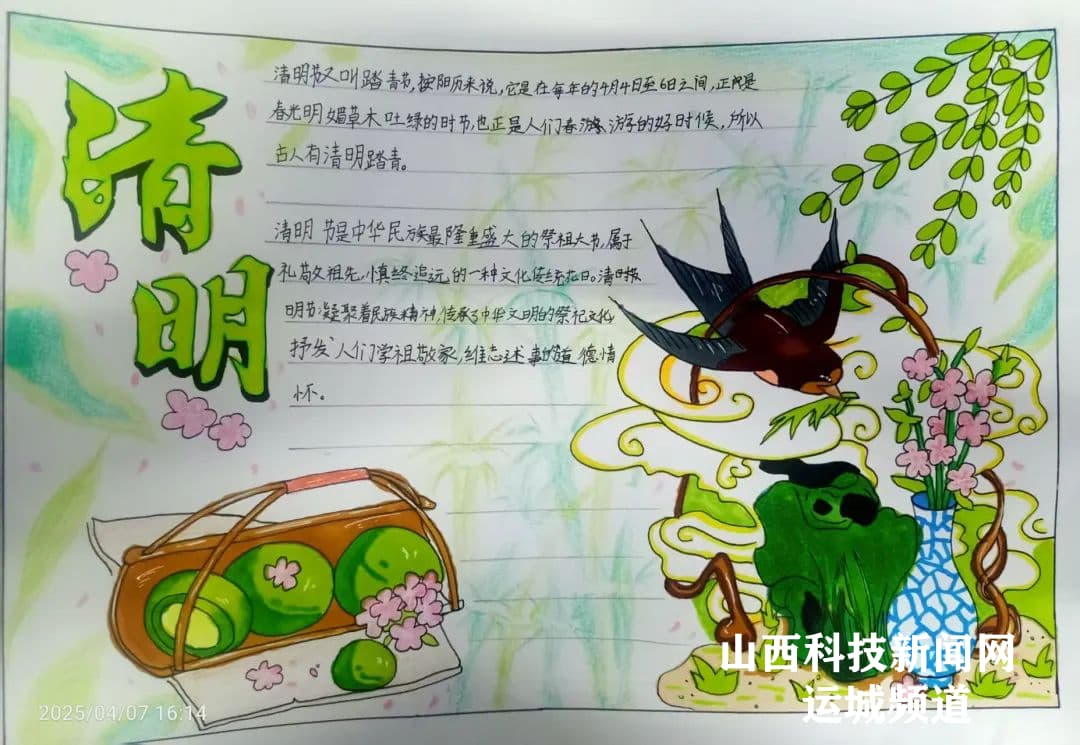 清明
清明节又叫踏青节,按阳历来说,它是在每年的4月4日至6日之间,正是
春光明媚草木吐绿的时节,也正是人们春游 游的好时候,所以
古人有清明踏青。
清明节是中华民族最隆重盛大的祭祖大节,属于
礼敬祖先,慎终追远的一种文化传统节日。清
明节凝聚着民族精神,传承了中华文明的祭祀文化
抒发人们学祖敬家,维志述事的道德情
怀。
2025/04/07 16:14
山西科技新闻网
运城频道